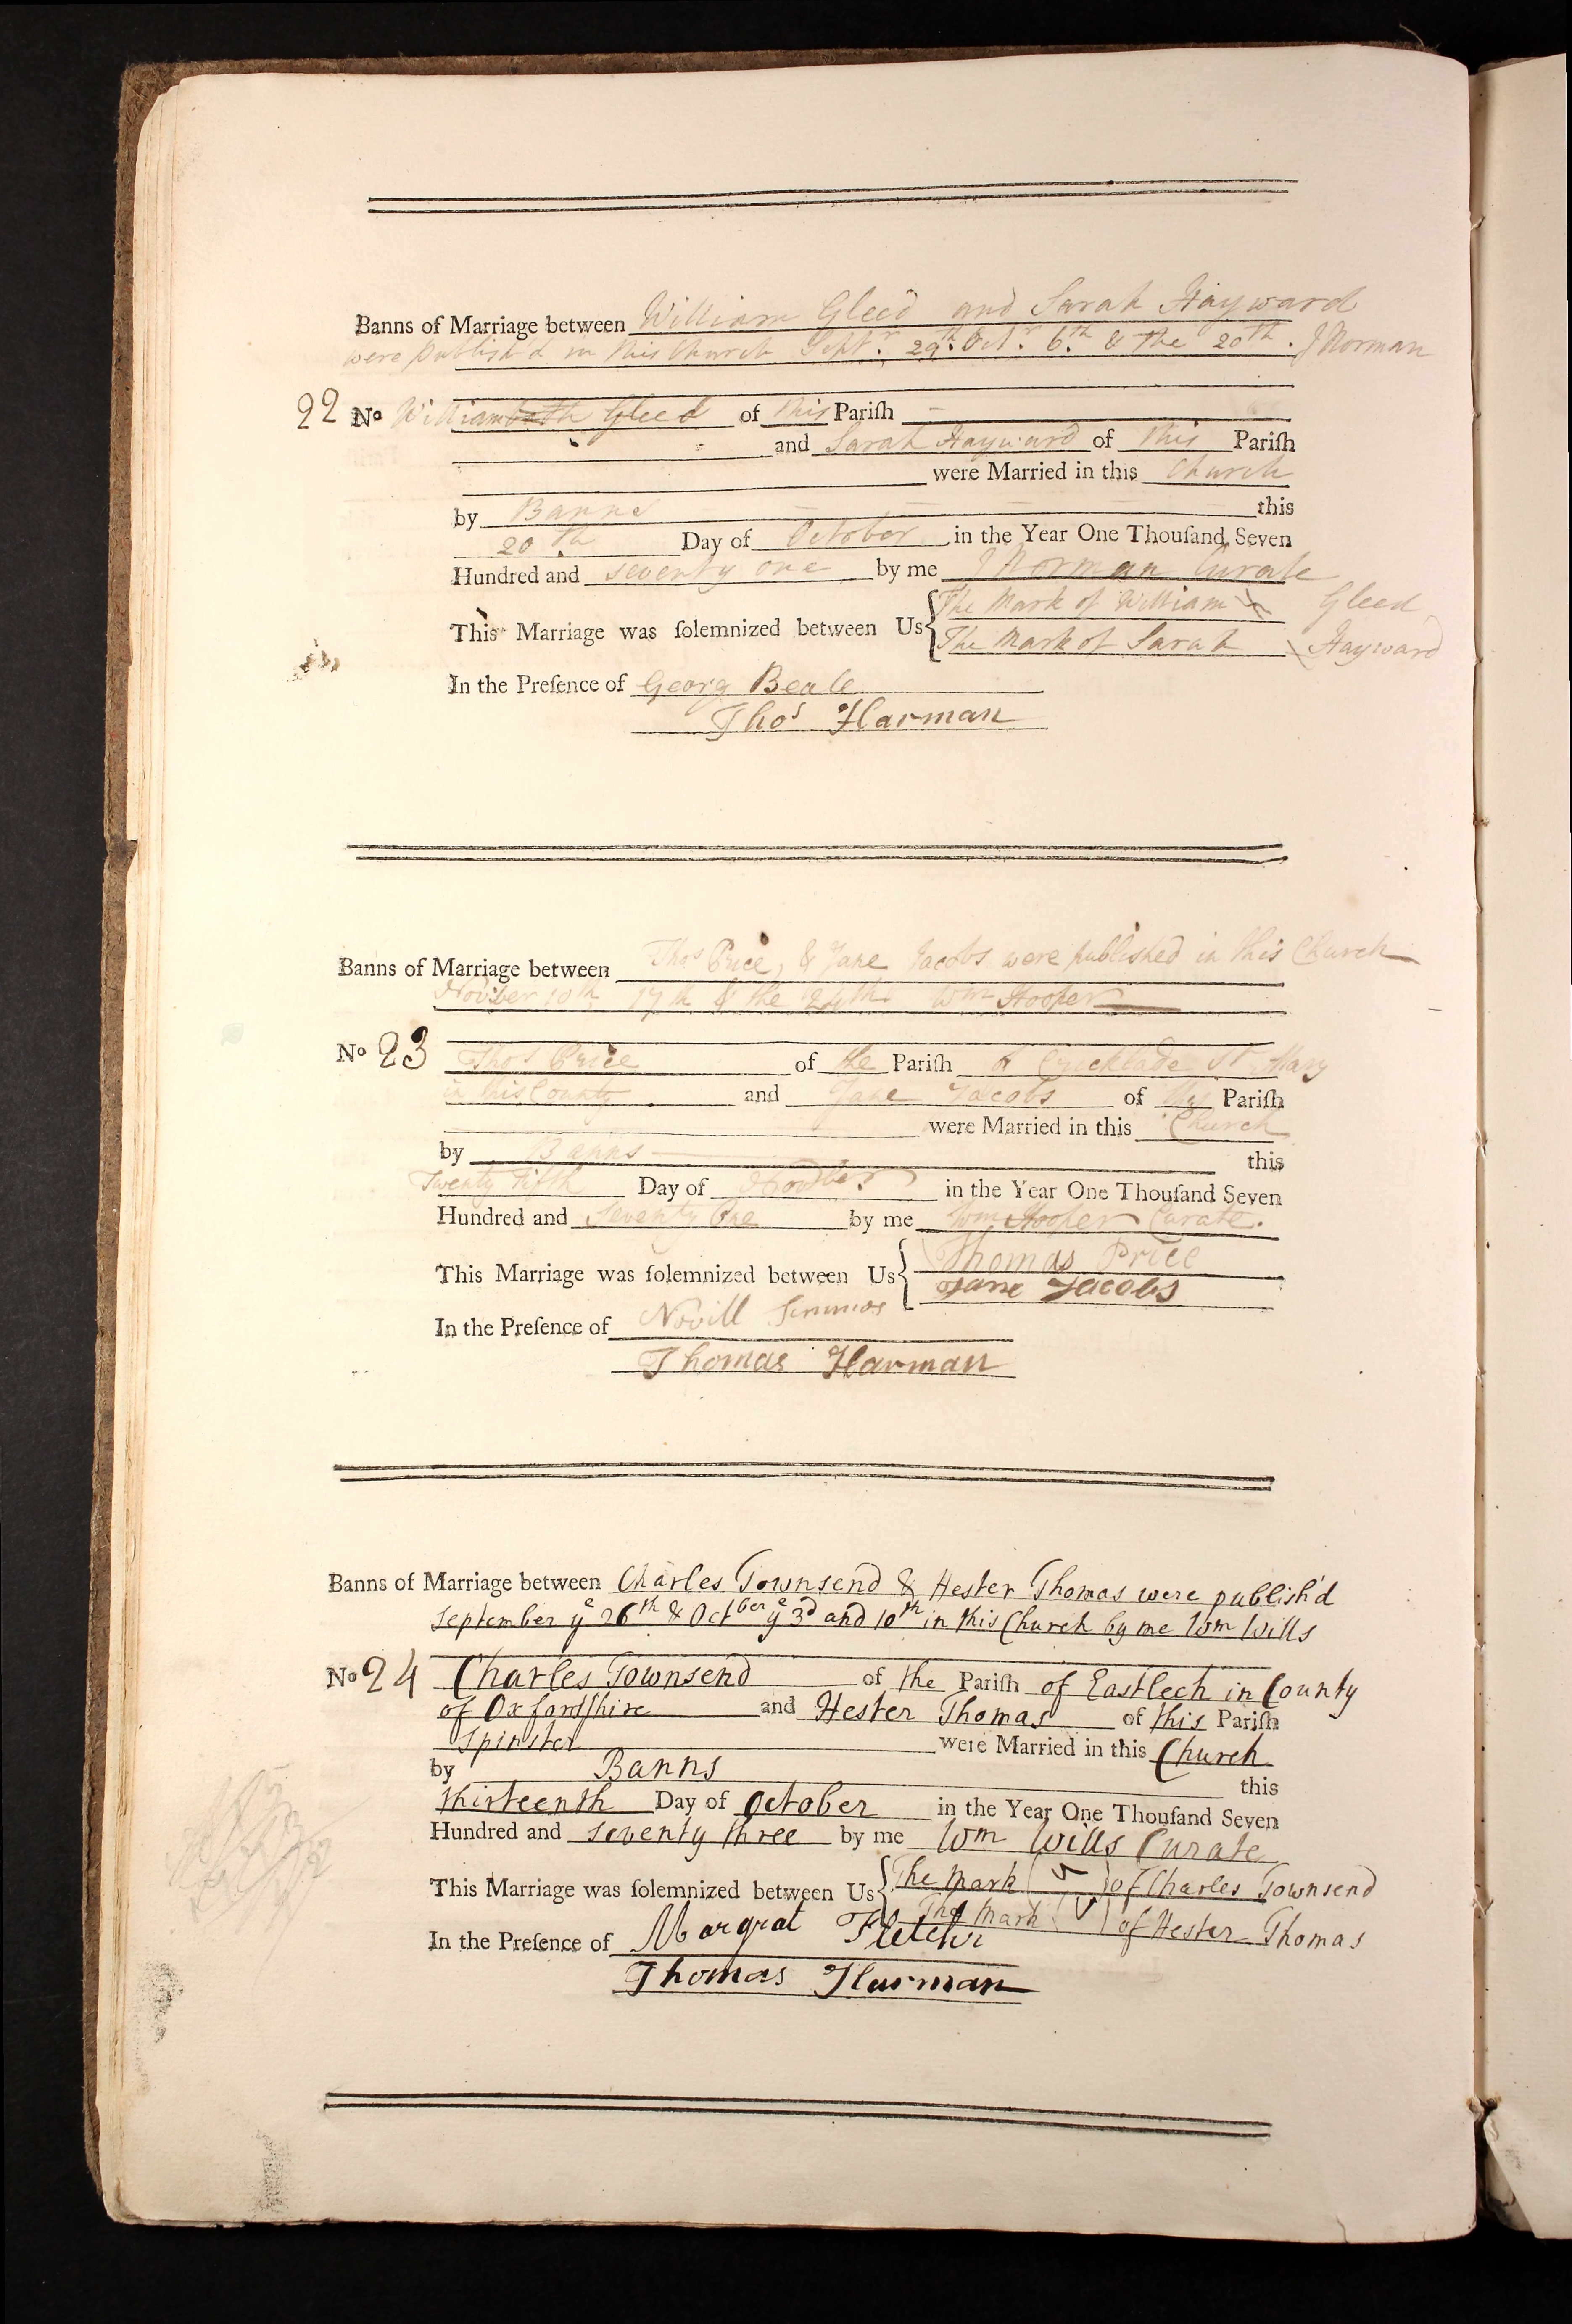 Banns of Marriage between William Gleed and Sarah Hayward
were publish'd in this Church Septr. 29th. Octr. 6th. & the 20th. J Norman
22 No William Gleed of this Pariſh
and Sarah Hayward of this Pariſh
were Married in this Church
by Banns this
20th Day of October in the Year One Thouſand Seven
Hundred and seventy one by me J Norman Curate
This Marriage was ſolemnized between Us The Mark of William X Gleed
The Mark of Sarah \ Hayward
In the Preſence of Georg Beale
Thos Harman
Banns of Marriage between Thos Price, & Jane Jacobs were published in this Church
Novber 10th 17th & the 24th Wm Hooper
No 23 Thos Price of the Pariſh of Cricklade St Mary
in this County and Jane Jacobs of this Pariſh
were Married in this Church
by Banns this
Twenty Fifth Day of Novber in the Year One Thouſand Seven
Hundred and Seventy One by me Wm Hooper Curate.
This Marriage was ſolemnized between Us Thomas Price
Jane Jacobs
In the Preſence of Novill
Thomas Harman
Banns of Marriage between Charles Townsend & Hester Thomas were publish'd
September ye 26th & Octber ye 3d and 10th in this Church by me Wm Wills
No 24 Charles Townsend of the Pariſh of Eastlech in County
of Oxfordſhire and Hester Thomas of this Pariſh
Spinster were Married in this Church
by Banns this
thirteenth Day of October in the Year One Thouſand Seven
Hundred and seventy three by me Wm Wills Curate
This Marriage was ſolemnized between Us The Mark of Charles Townsend
The Mark of Hester Thomas
In the Preſence of Margrat Fletchr
Thomas Harman